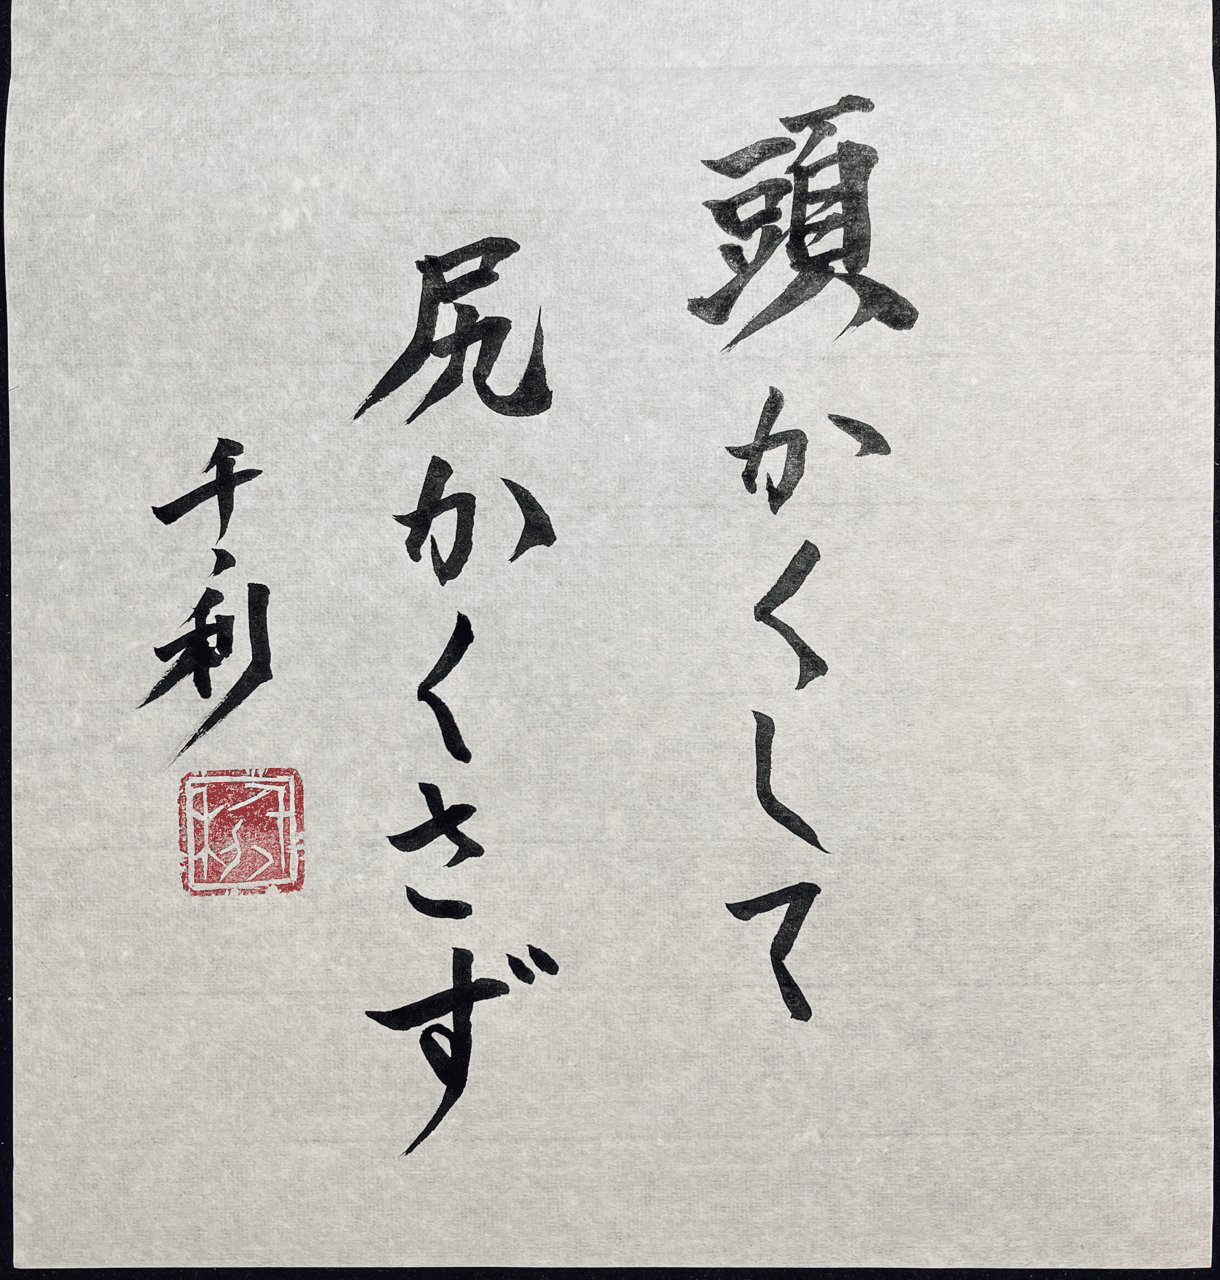 頭かくして
尻かくさず
千利